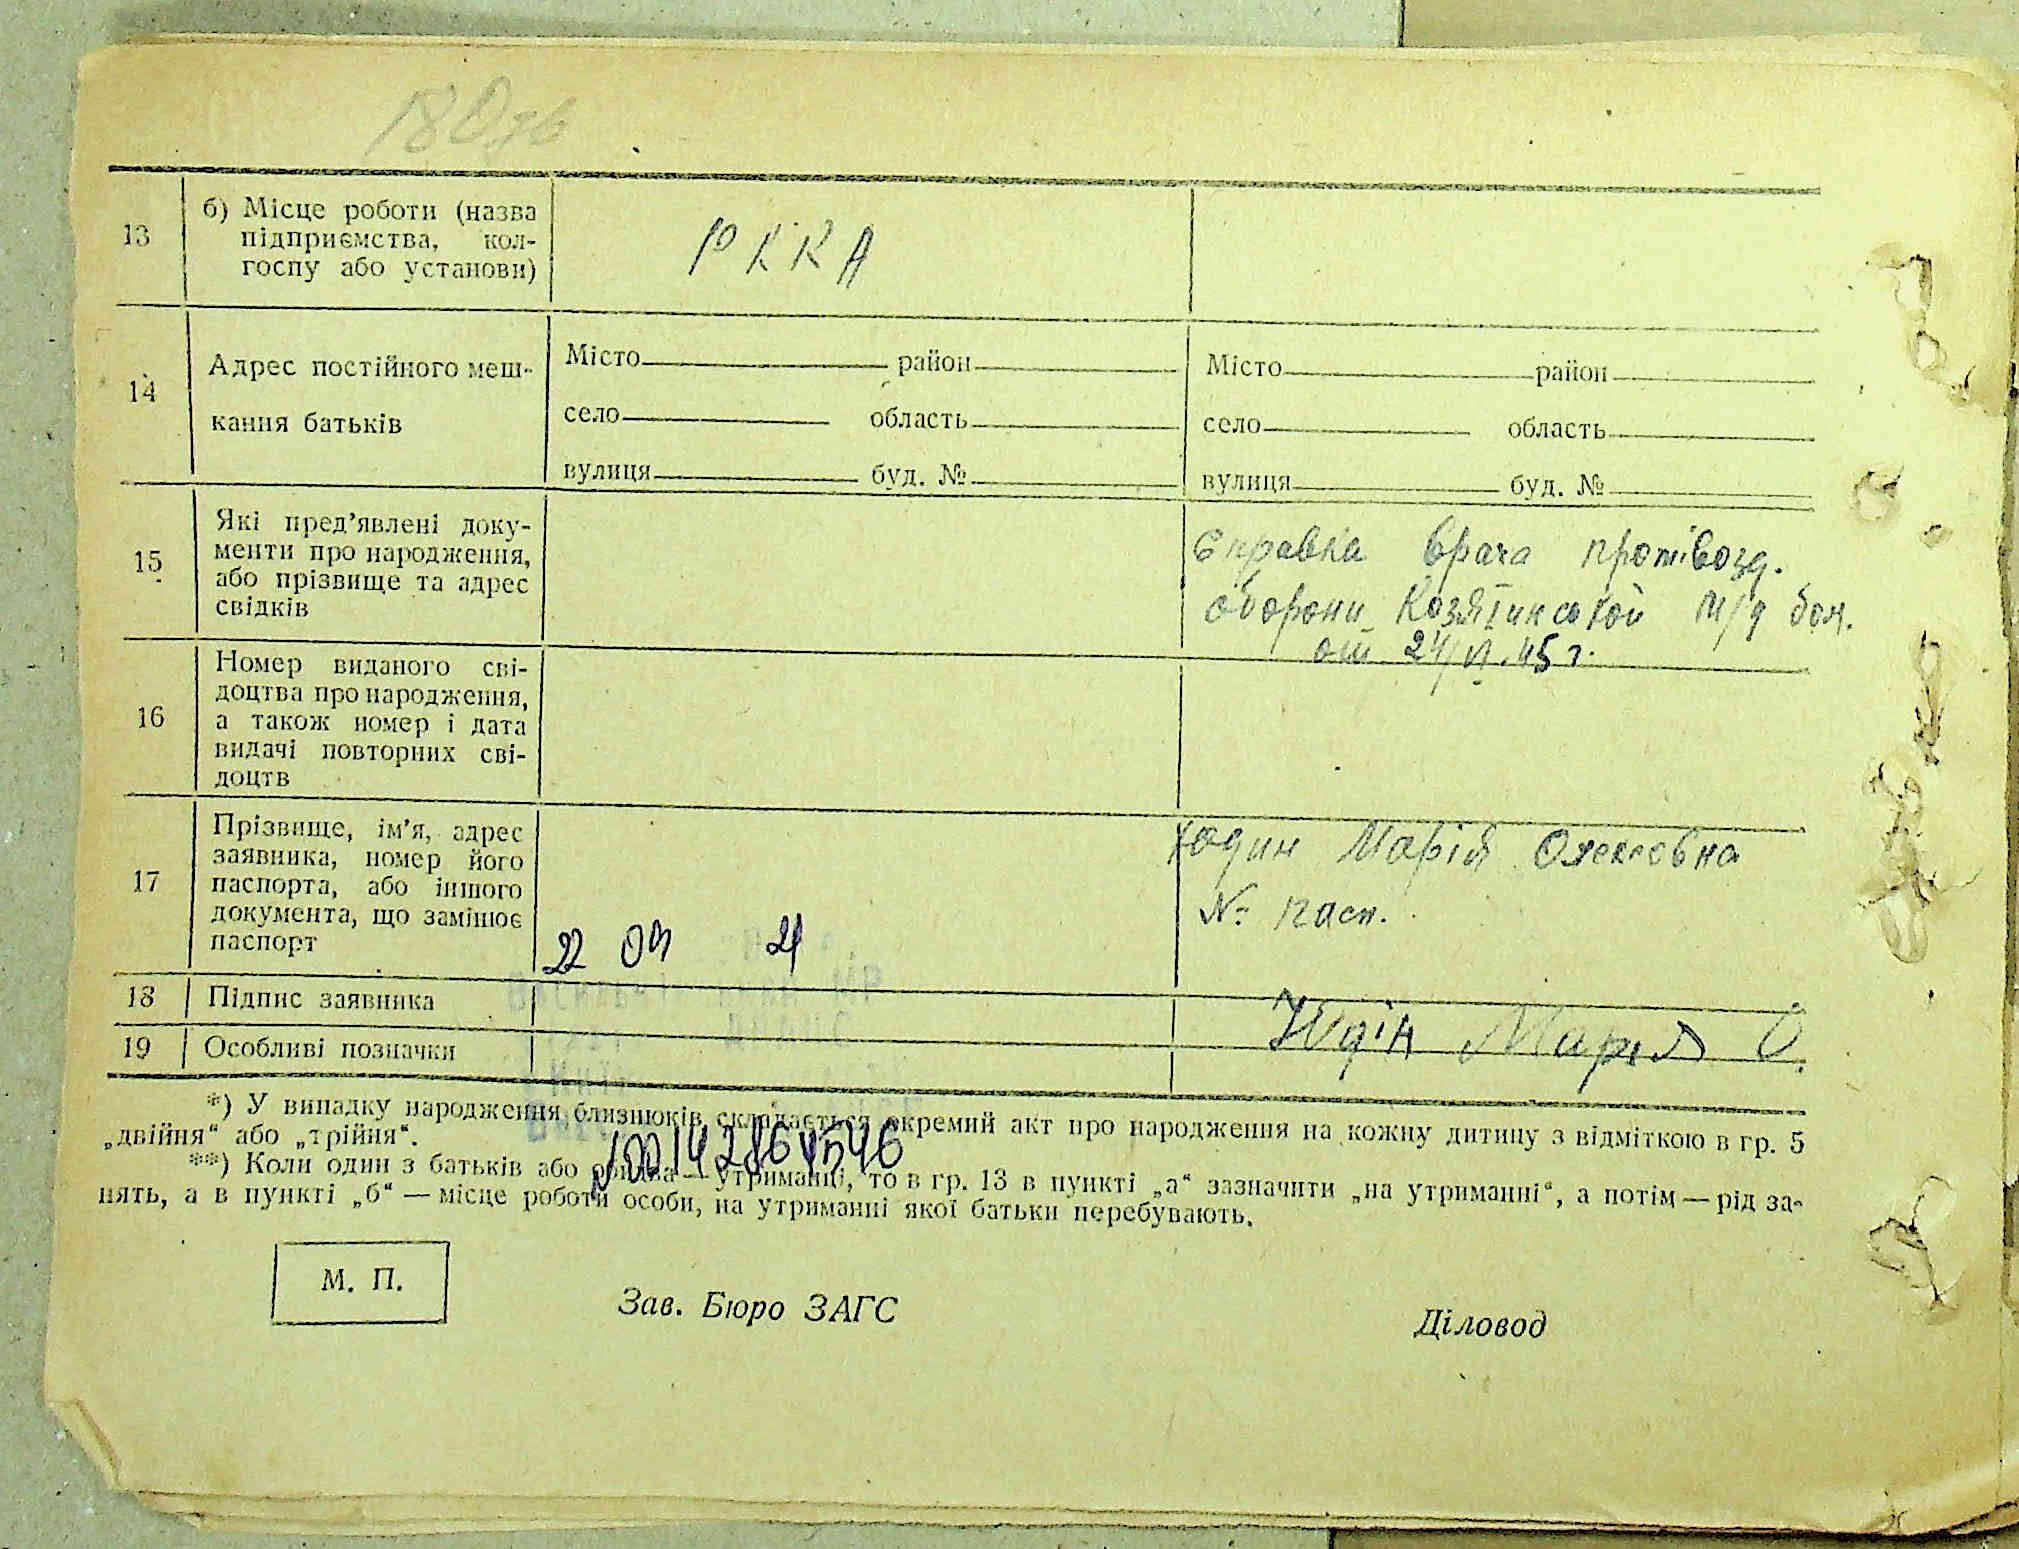 180зв
13
б) Місце роботи (назва
підприємства, кол-
госпу або установи)
РККА
14
Адрес постійного меш-
кання батьків
Місто район
село область
вулиця буд. №
Місто район
село область
вулиця буд. №
15
Які пред'явлені доку-
менти про народження,
або прізвище та адрес
свідків
Справка врача протівозд.
оборони Козятинської ж/д бол.
от 24/VI.45 г.
16
Номер виданого сві-
доцтва про народження,
а також номер і дата
видачі повторних сві-
доцтв
17
Прізвище, ім'я, адрес
заявника, номер його
паспорта, або іншого
документа, що замінює
паспорт
22 03 21
Юдин Марія Олексєєвна
№ пасп.
18
Підпис заявника
Юдін Марія О.
19
Особливі позначки
*) У випадку народження близнюків складається окремий акт про народження на кожну дитину з відміткою в гр. 5
„двійня“ або „трійня“.
№00142864546
**) Коли один з батьків або обидва — утриманці, то в гр. 13 в пункті „а“ зазначити „на утриманні“, а потім — рід за-
нять, а в пункті „б“ — місце роботи особи, на утриманні якої батьки перебувають.
М. П.
Зав. Бюро ЗАГС
Діловод